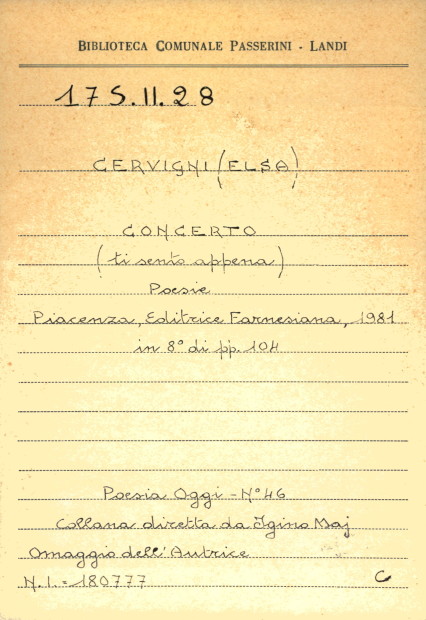 BIBLIOTECA COMUNALE PASSERINI - LANDI
17 S.II.28
CERVIGNI (ELSA)
CONCERTO
(ti sento appena)
Poesie
Piacenza, Editrice Farnesiana, 1981
in 8° di pp. 104
Poesia Oggi - N° 46
Collana diretta da Igino Maj
Omaggio dell'Autrice
N. I. = 180777 C